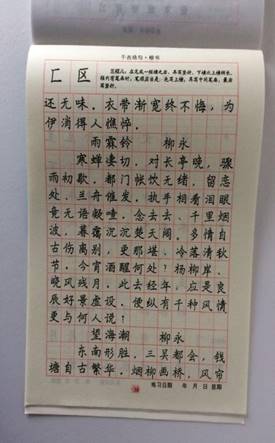 千古绝句·楷书
匚 区
还无味。衣带渐宽终不悔，为
伊消得人憔悴。
雨霖铃 柳永
寒蝉凄切，对长亭晚，骤
雨初歇。都门帐饮无绪，留恋
处、兰舟催发。执手相看泪眼，
竟无语凝噎。念去去、千里烟
波，暮霭沉沉楚天阔。多情自
古伤离别，更那堪、冷落清秋
节。今宵酒醒何处？杨柳岸、
晓风残月。此去经年，应是良
辰好景虚设。便纵有千种风情，
更与何人说？
望海潮 柳永
东南形胜，三吴都会，钱
塘自古繁华。烟柳画桥，风帘
练习日期 年 月 日 星期